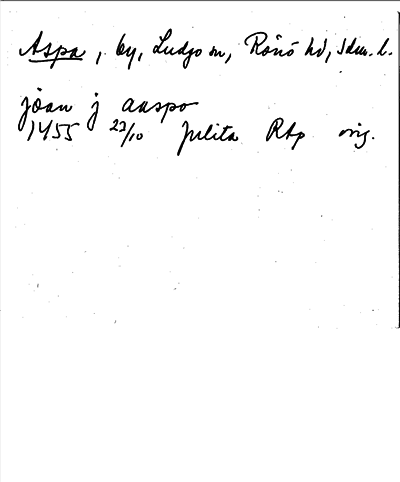 Aspa, by, Ludgo sn, Rönö hd, Sdm. l.
jöan j aaspo
1455 22/10 Julita RAp orig.